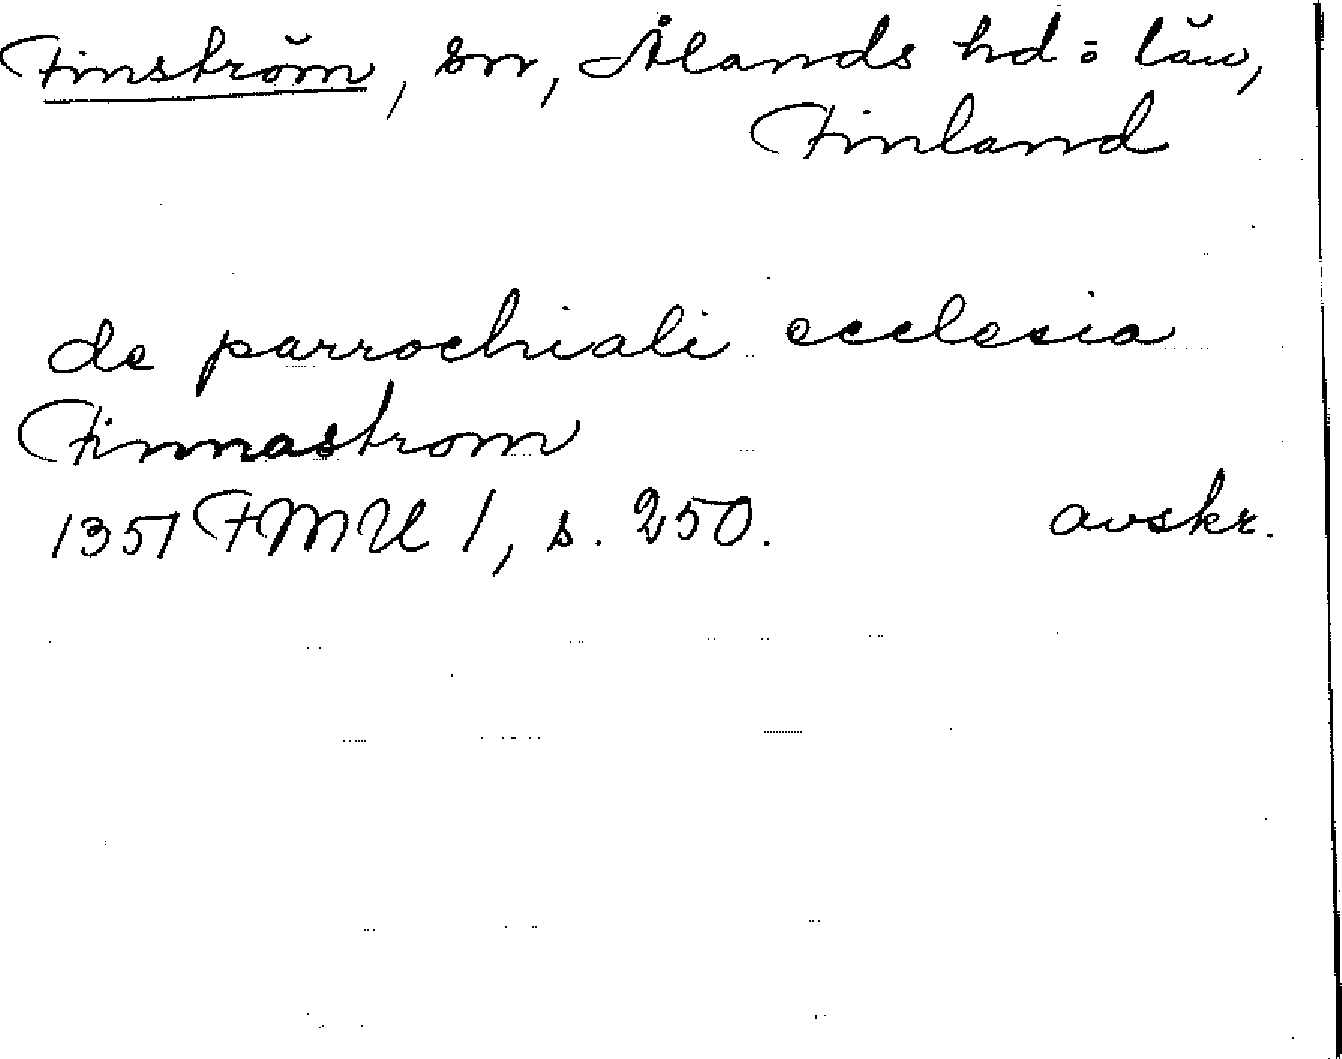 Finström, sn, Ålands hd o län,
Finland
de parrochiali ecclesia
Finnastrom
1351 FMU 1, s. 250. avskr.